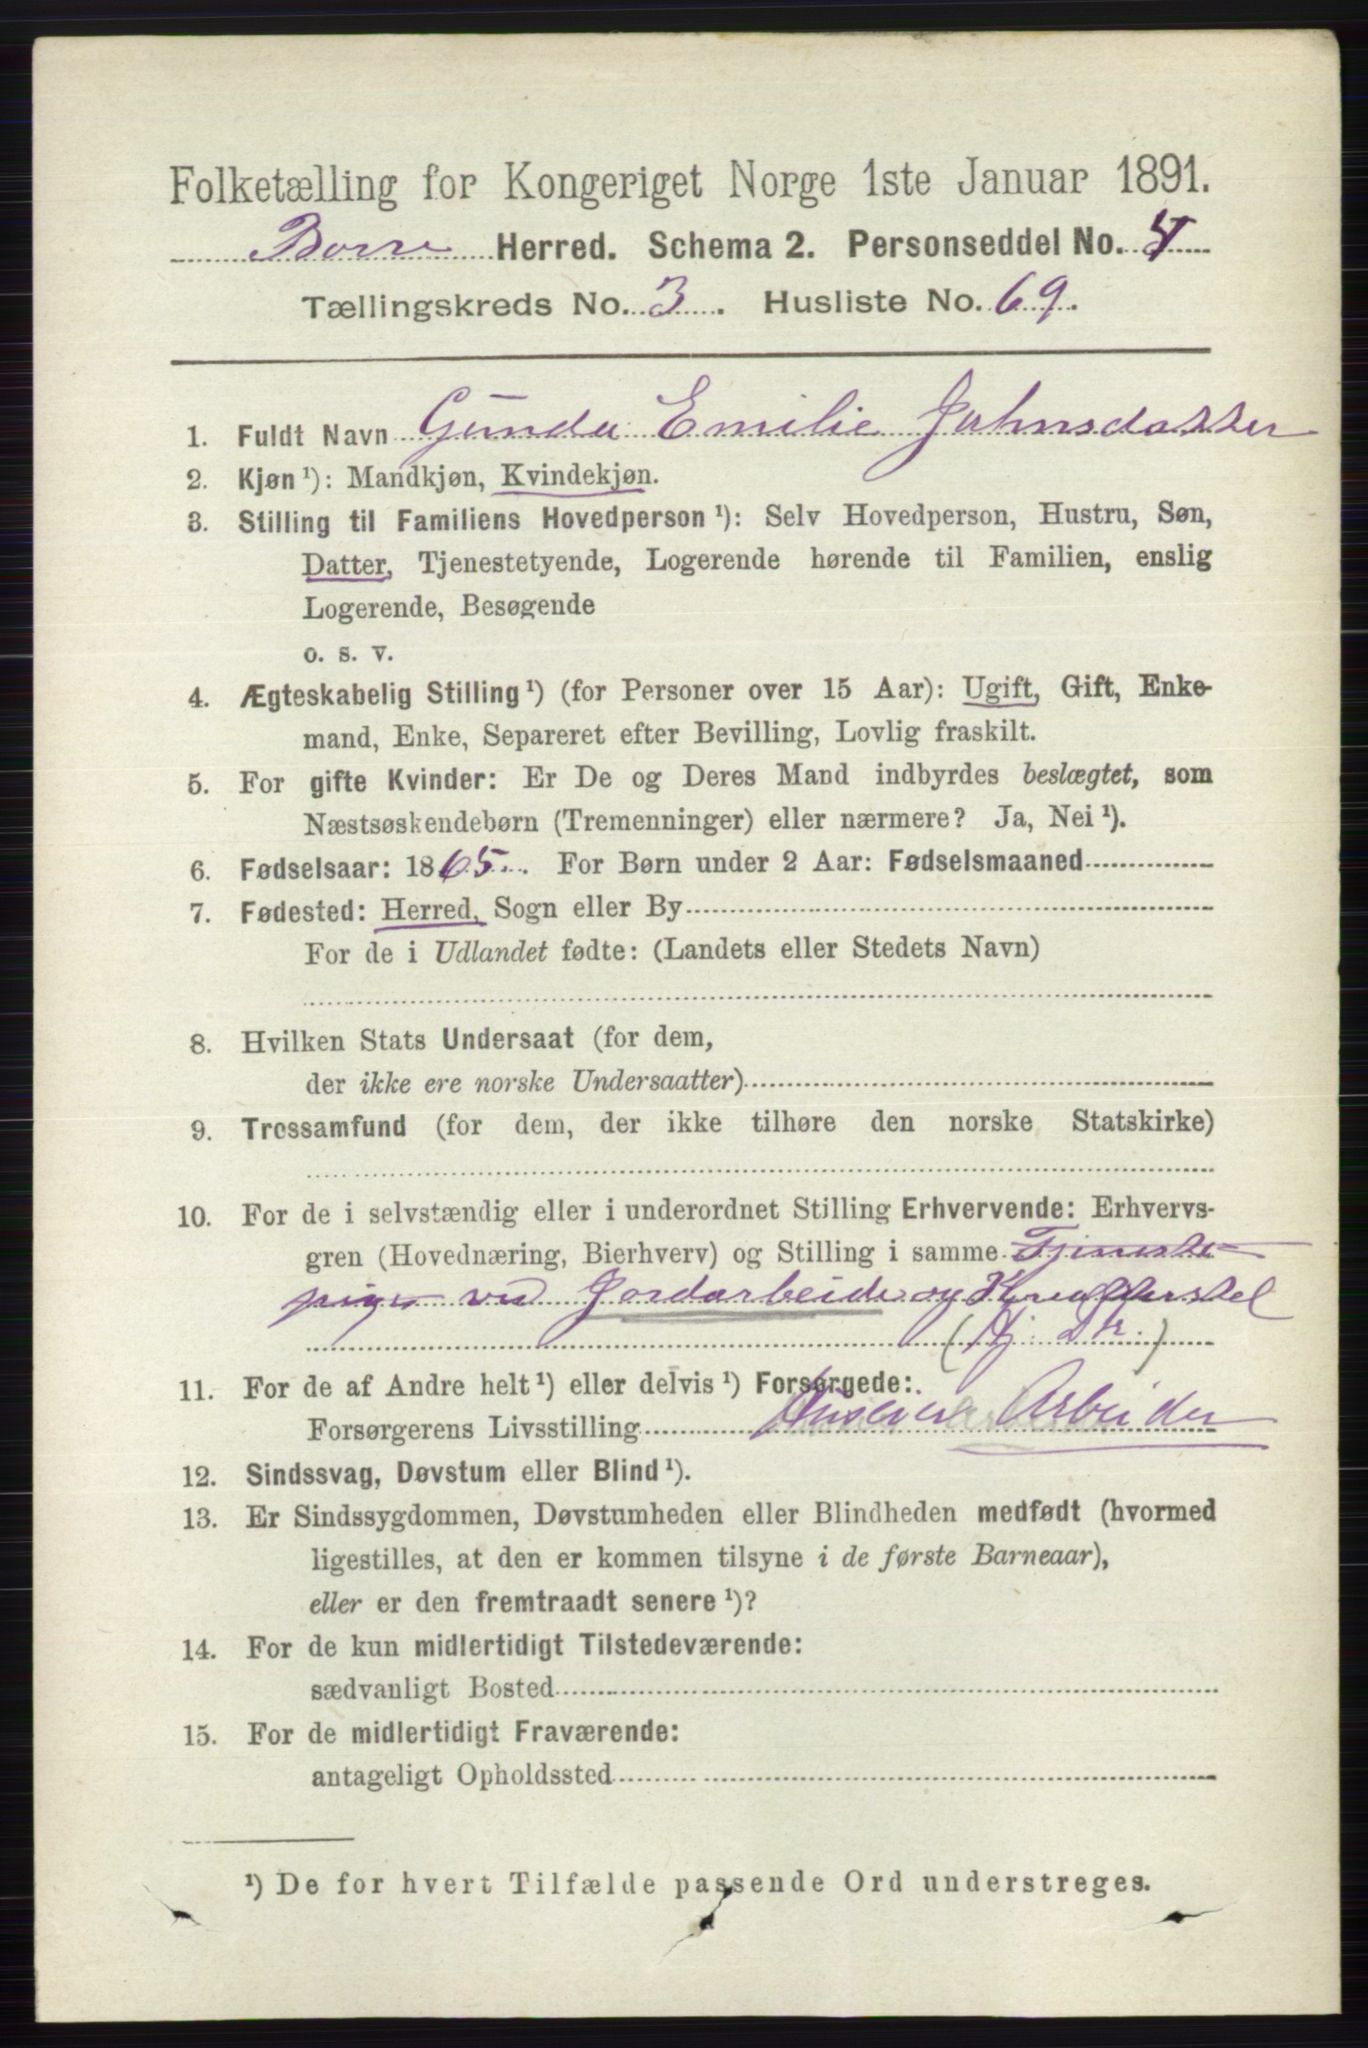 Folketælling for Kongeriget Norge 1ste Januar 1891.
Borre Herred. Schema 2. Personseddel No.
Tællingskreds No. 3. Husliste No. 69.
1. Fuldt Navn Gunda Emilie Johnsdatter
2. Kjøn ¹): Mandkjøn, Kvindekjøn.
3. Stilling til Familiens Hovedperson ¹): Selv Hovedperson, Hustru, Søn,
Datter, Tjenestetyende, Logerende hørende til Familien, enslig
Logerende, Besøgende
o. s. v.
4. Ægteskabelig Stilling ¹) (for Personer over 15 Aar): Ugift, Gift, Enke-
mand, Enke, Separeret efter Bevilling, Lovlig fraskilt.
5. For gifte Kvinder: Er De og Deres Mand indbyrdes beslægtet, som
Næstsøskendebørn (Tremenninger) eller nærmere? Ja, Nei ¹).
6. Fødselsaar: 1865. For Børn under 2 Aar: Fødselsmaaned
7. Fødested: Herred, Sogn eller By
For de i Udlandet fødte: (Landets eller Stedets Navn)
8. Hvilken Stats Undersaat (for dem,
der ikke ere norske Undersaatter)
9. Trossamfund (for dem, der ikke tilhøre den norske Statskirke)
10. For de i selvstændig eller i underordnet Stilling Erhvervende: Erhvervs-
gren (Hovednæring, Bierhverv) og Stilling i samme Tjeneste
pige ved Jordarbeide og Kreaturstel
11. For de af Andre helt ¹) eller delvis ¹) Forsørgede:
Forsørgerens Livsstilling Arbeider
12. Sindssvag, Døvstum eller Blind ¹).
13. Er Sindssygdommen, Døvstumheden eller Blindheden medfødt (hvormed
ligestilles, at den er kommen tilsyne i de første Barneaar),
eller er den fremtraadt senere ¹)?
14. For de kun midlertidigt Tilstedeværende:
sædvanligt Bosted
15. For de midlertidigt Fraværende:
antageligt Opholdssted
¹) De for hvert Tilfælde passende Ord understreges.